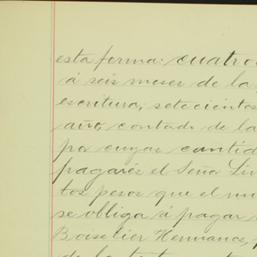 esta forma: cuatro
á seis meses de la
escritura, setecientos
año contado de la
por cuyas cantid
pagarés el Señor
tos pesos que el
se obliga á pagar
Boiselier Hermance,